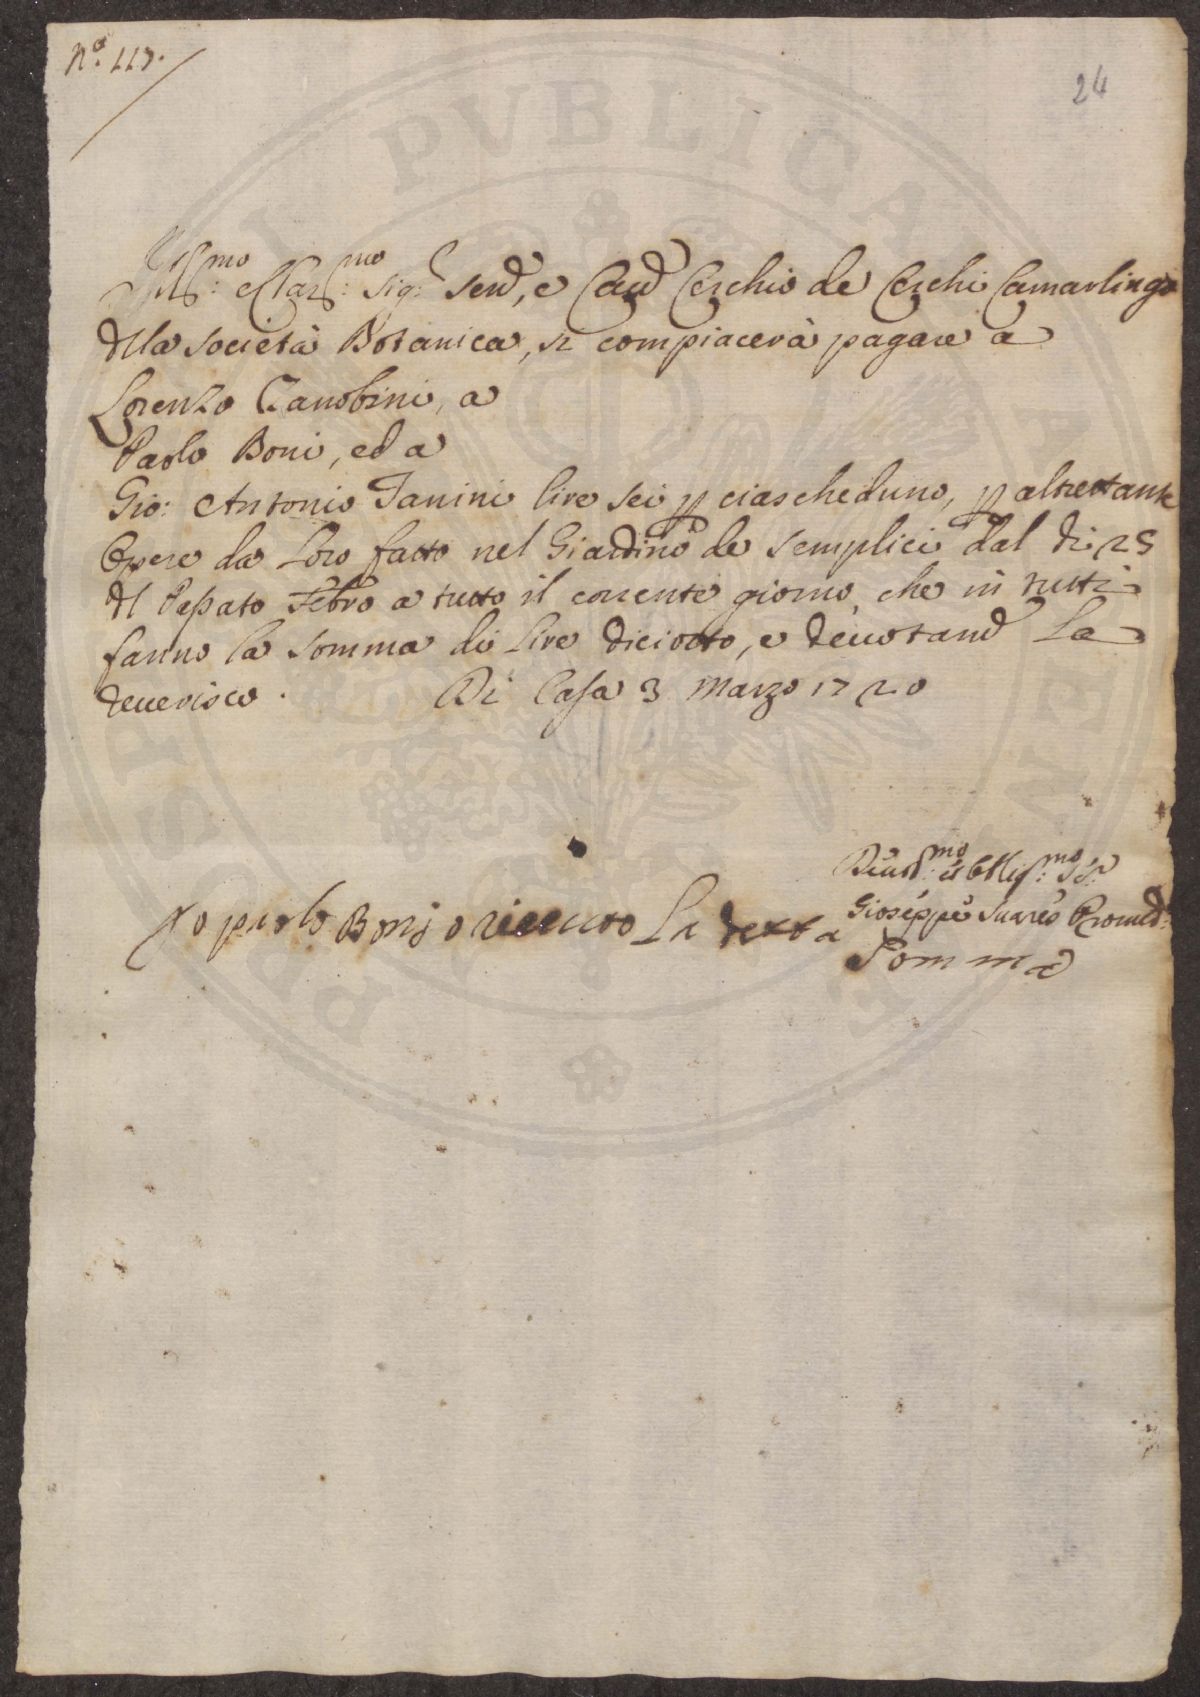 N.o 117.
24
Ill.mo e Clar.mo Sig.r Send, e Caud Cerchio de Cerchi Camarlingo
dlla società Botanica, si compiacerà pagare a
Lorenzo Zanobini, a
Paolo Boni, ed a
Gio: Antonio Fanini lire sei p ciascheduno, p altrettante
Opere da Loro fatto nel Giardino de semplici dal di 25
dl Passato Febro a tutto il corrente giorno, che in tutti
fanno la somma di Lire diciotto, e deuotand La
reuerisco. Di Casa 3 Marzo 1720
Giuseppe Suares Proued.
Jo paolo Bonj o riceuuto La detta
Somma